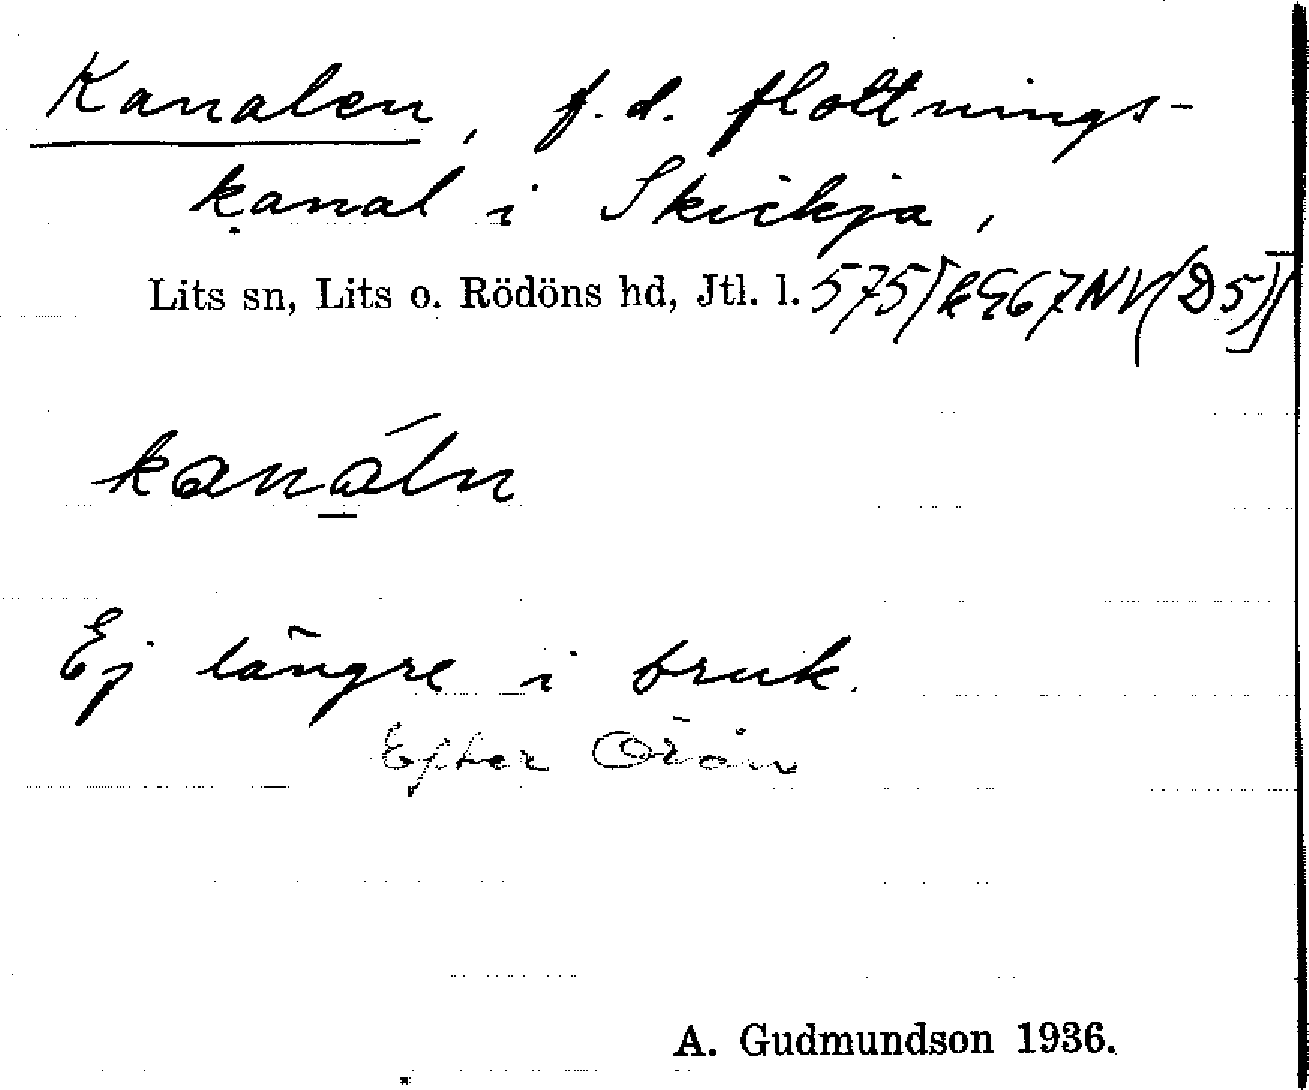 Kanalen, f.d. flottnings-
kanal i Skickja,
Lits sn, Lits o. Rödöns hd, Jtl. l. 575
kanáln
Ej längre i bruk.
Efter Örån
A. Gudmundson 1936.